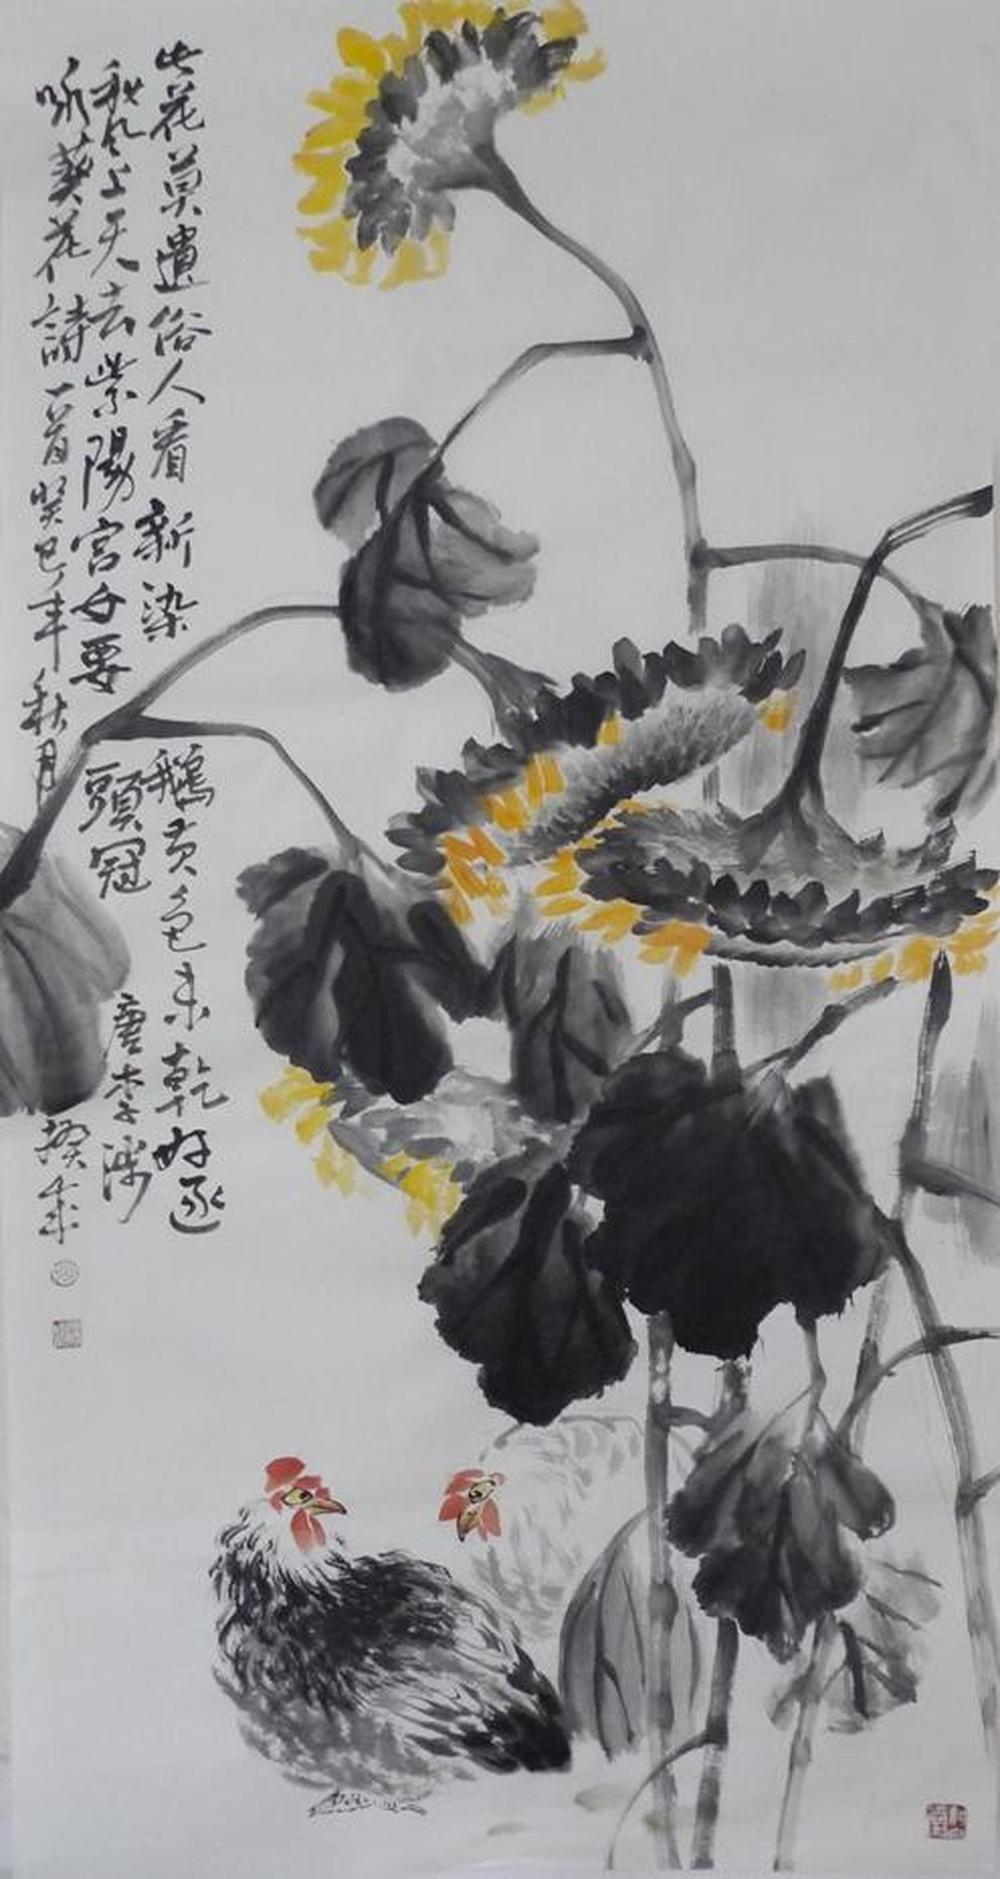 此花莫遺俗人看新染鵝黃色未乾好逐
秋风上天去紫陽宮女要頭冠 唐李涉
咏葵花詩一首癸巳年秋月